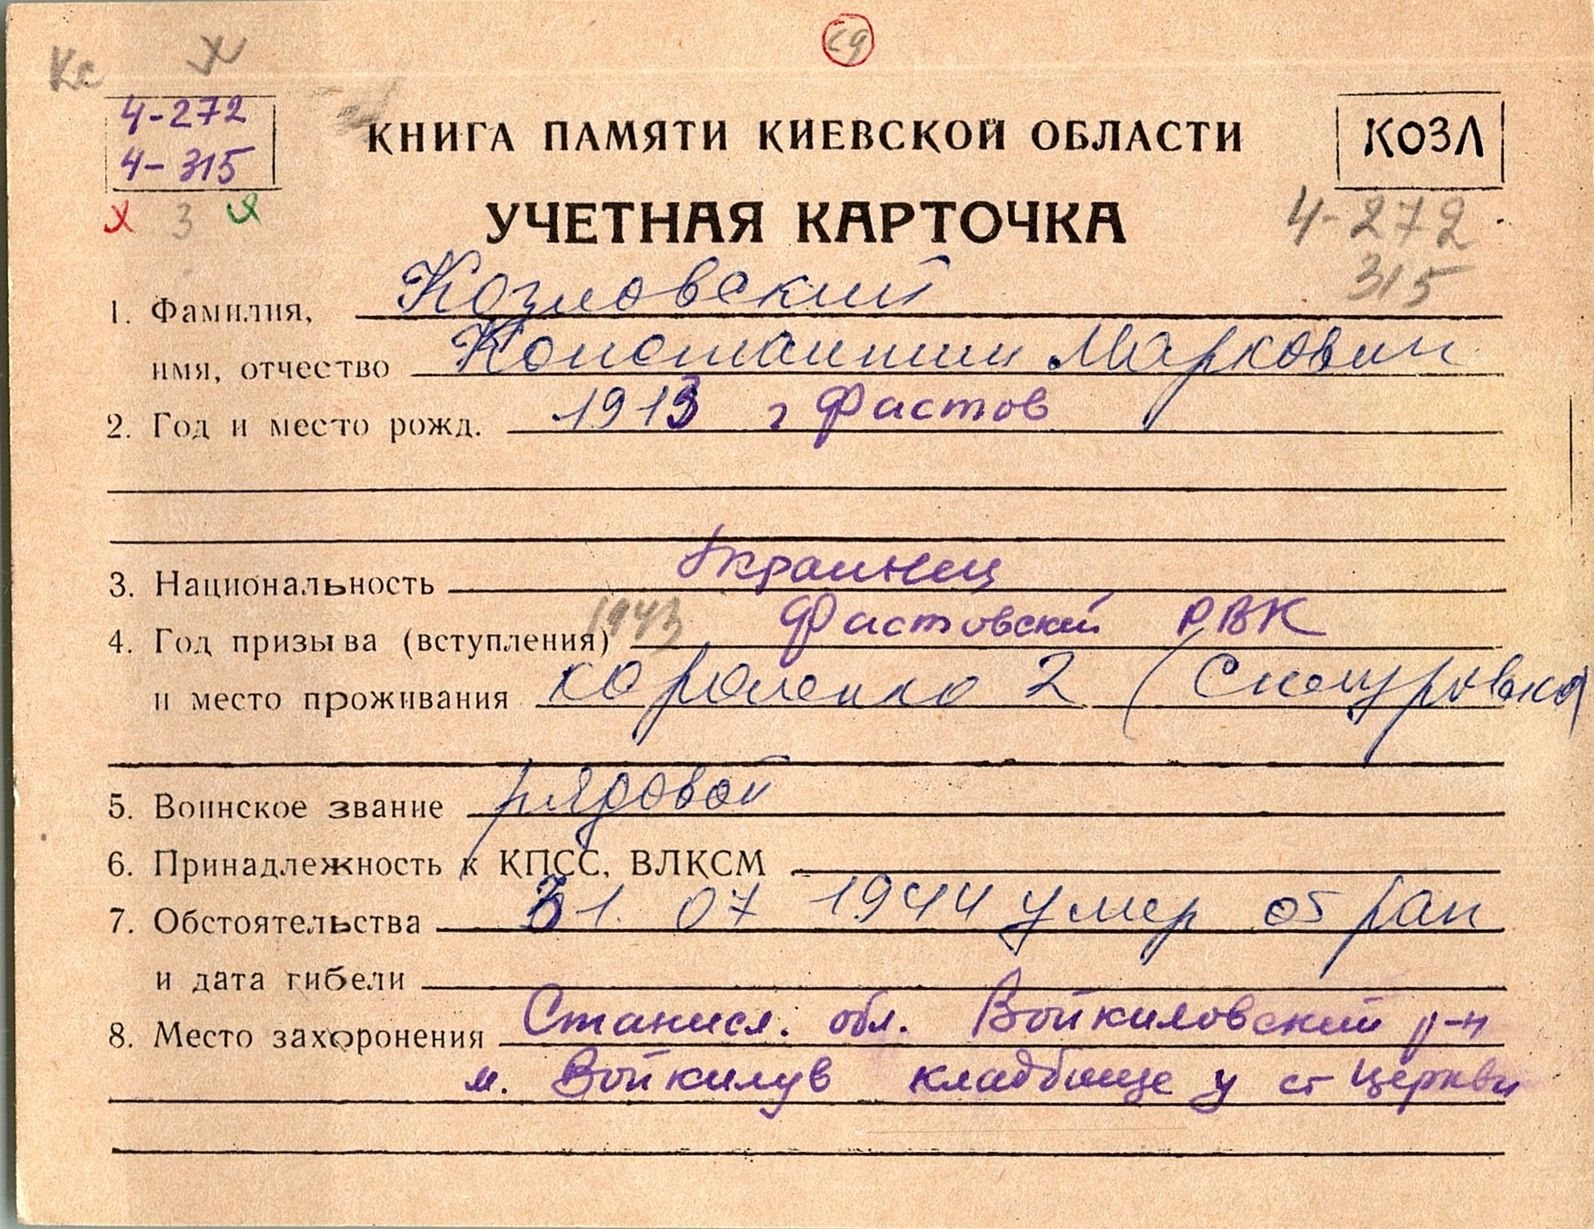 Кс
сд
4-272
4-315
КНИГА ПАМЯТИ КИЕВСКОЙ ОБЛАСТИ
КОЗЛ
3
УЧЕТНАЯ КАРТОЧКА
4-272
315
1. Фамилия, Козловский
имя, отчество Константин Маркович
2. Год и место рожд. 1913 г Фастов
3. Национальность Украинец
4. Год призыва (вступления) 1943 Фастовский РВК
и место проживания короленко 2 (
5. Воинское звание рядовой
6. Принадлежность к КПСС, ВЛКСМ
7. Обстоятельства 31. 07 1944 умер от ран
и дата гибели
8. Место захоронения Станисл. обл. Войкиловский р-н
м. Войкилув кладбище у ст церкви